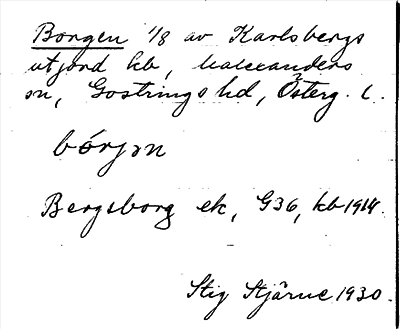 Borgen 1/8 av Karlsbergs
utjord kb, Walexanders
sn, Gostrings hd, Österg. l.
bórjɔn
Bergsborg ek, G36, kb 1914.
Stig Stjärne 1930.